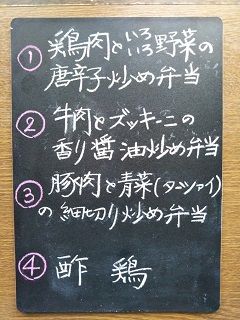 ① 鶏肉といろいろ野菜の
唐辛子炒め弁当
② 牛肉とズッキーニの
香り醤油炒め弁当
③ 豚肉と青菜(タンツァイ)
の細切り炒め弁当
④ 酢鶏